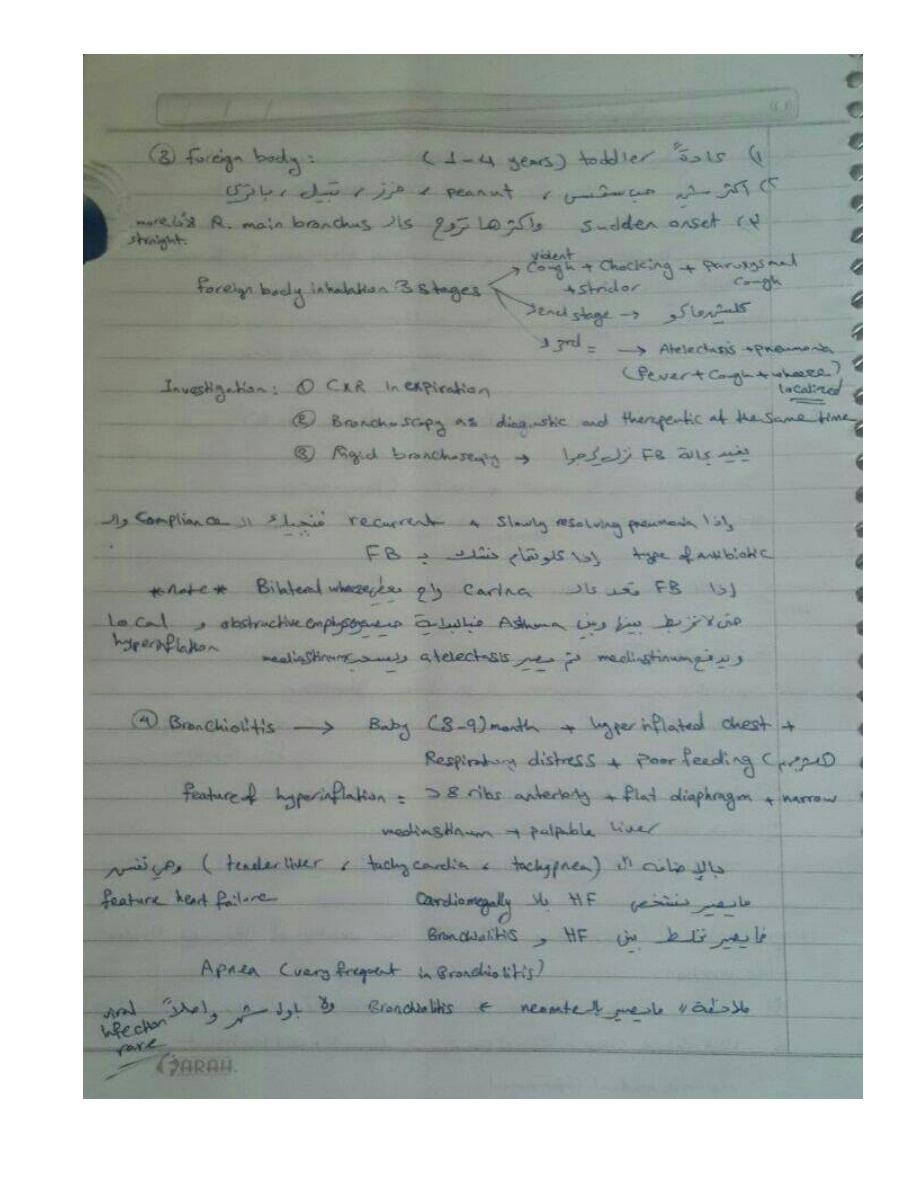 ③ Foreign body : (1-4 years) toddler عادةً (١
٢) اكثر شي حب شمس ، peanut ، خرز ، تيل ، باتري
٣) Sudden onset واكثرها تروح عالـ R. main bronchus لأنه more straight.
foreign body inhalation 3 stages
→ Cough + Chocking + paroxysmal cough + stridor
2end stage → كلشي ماكو
3rd = → Atelectasis + pneumonia
(Fever + Cough + wheeze) localized
Investigation : ① CXR in expiration
② Bronchoscopy as diagnostic and therapeutic at the same time
③ Rigid bronchoscopy → يفيد بحالة FB
اذا slowly resolving pneumonia و recurrent الـ Compliance والـ
type of antibiotic اذا كلو تمام نشك بـ FB
*note* اذا FB قعد عالـ Carina راح يعطي Bilateral wheeze
حتى لا نخربط بينها وبين Asthma فبالبداية obstructive emphysema و Local hyperinflation
ويدفع mediastinum ثم يصير atelectasis ويسحب mediastinum
④ Bronchiolitis → Baby (8-9) month + hyperinflated chest +
Respiratory distress + poor feeding
feature of hyperinflation = >8 ribs anteriorly + flat diaphragm + narrow
mediastinum + palpable liver
بالإضافه الـ (tender liver ، tachycardia ، tachypnea) وهي نفس
feature heart failure مايصير نشخص HF بلا Cardiomegally
فما يصير نخلط بين HF و Bronchiolitis
Apnea (very frequent in Bronchiolitis)
ملاحظة // مايصير بالـ neonate Bronchiolitis ولا باول شهر واصلاً viral infection rare
SARAH